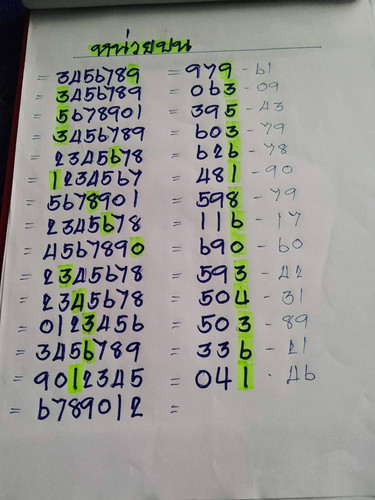 หน่วยบน
= 3456789 = 979 - 61
= 3456789 = 063 - 09
= 5678901 = 395 - 43
= 3456789 = 603 - 79
= 2345678 = 626 - 78
= 1234567 = 481 - 90
= 5678901 = 598 - 79
= 2345678 = 116 - 17
= 4567890 = 690 - 60
= 2345678 = 593 - 42
= 2345678 = 504 - 31
= 0123456 = 503 - 89
= 3456789 = 336 - 21
= 9012345 = 041 - 26
= 6789012 =